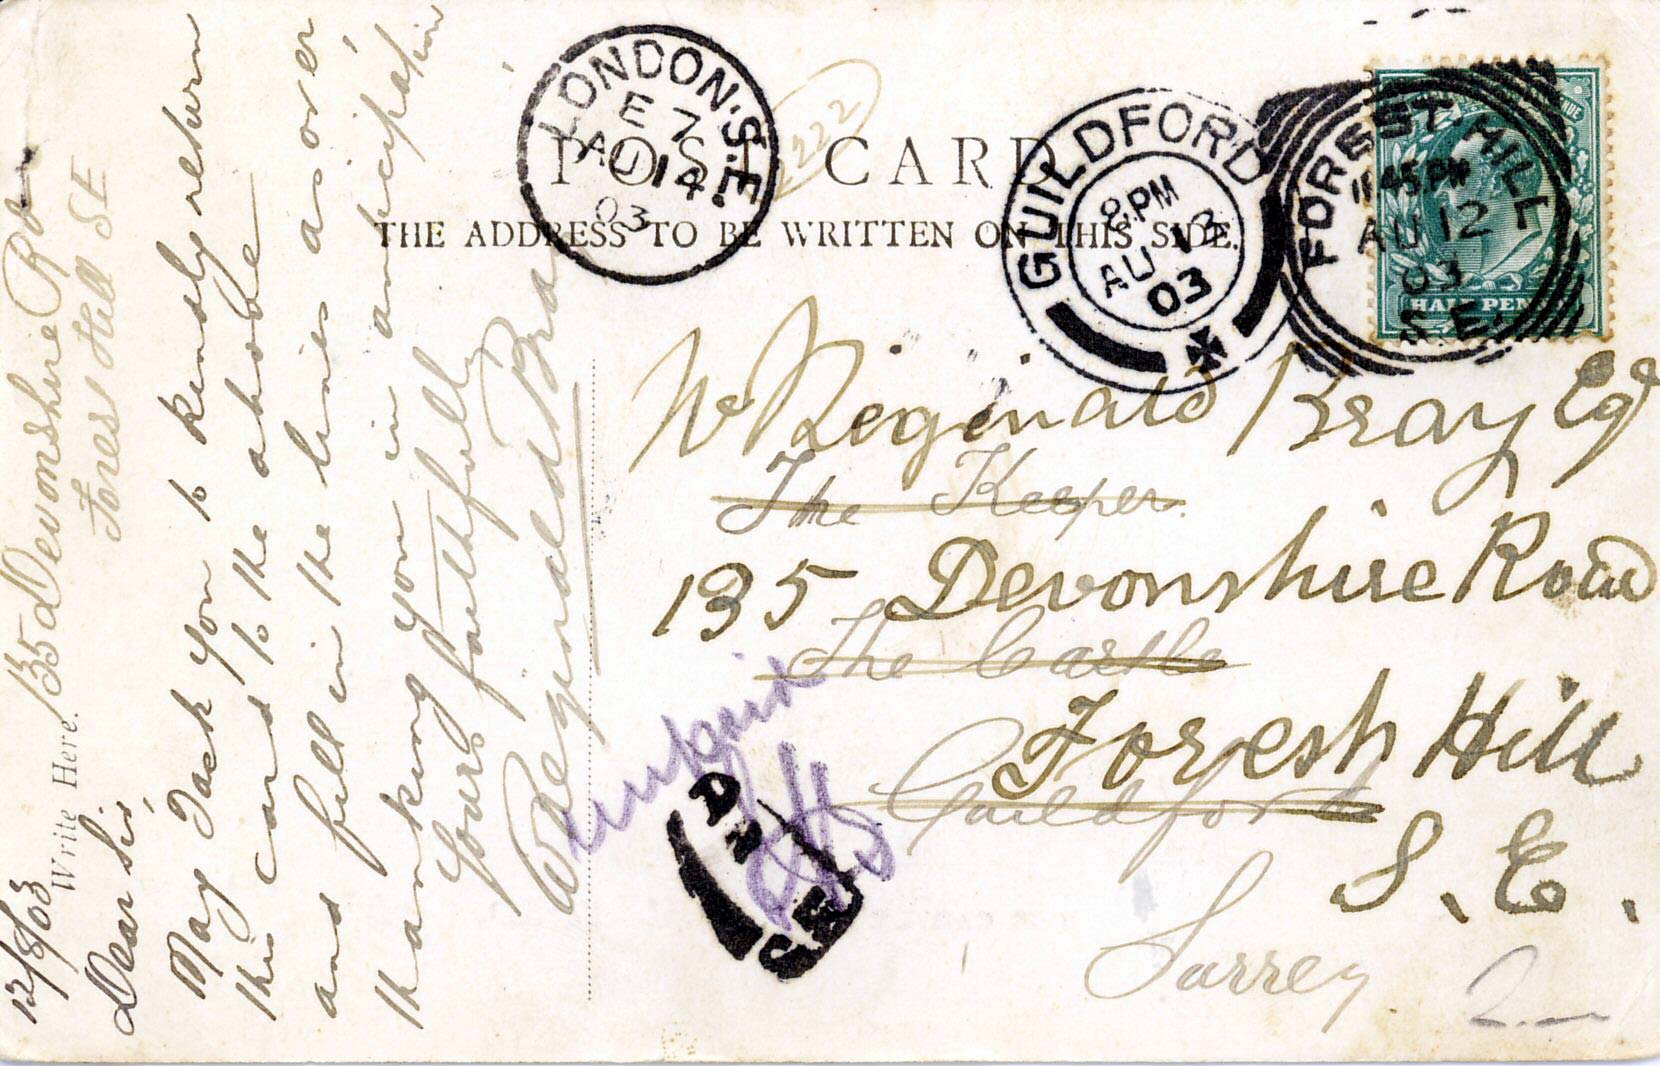 POST CARD
THE ADDRESS TO BE WRITTEN ON THIS SIDE.
LONDON. S.E
E 7
AU 14
03
222
GUILDFORD
8. PM
AU 13
03
FOREST HILL
11.45 PM
AU 12
03
S.E.
HALF PEN
Write Here.
135 Devonshire Rd
Forest Hill SE
12/8/03
Dear Sir,
May I ask you to kindly return
this card to the above
and fill in the lines as over
thanking you in anticipation
Yours faithfully
W Reginald Bray
W Reginald Bray Esq
The Keeper
135 Devonshire Road
The Castle
Forest Hill
Guildford
S. E.
Surrey